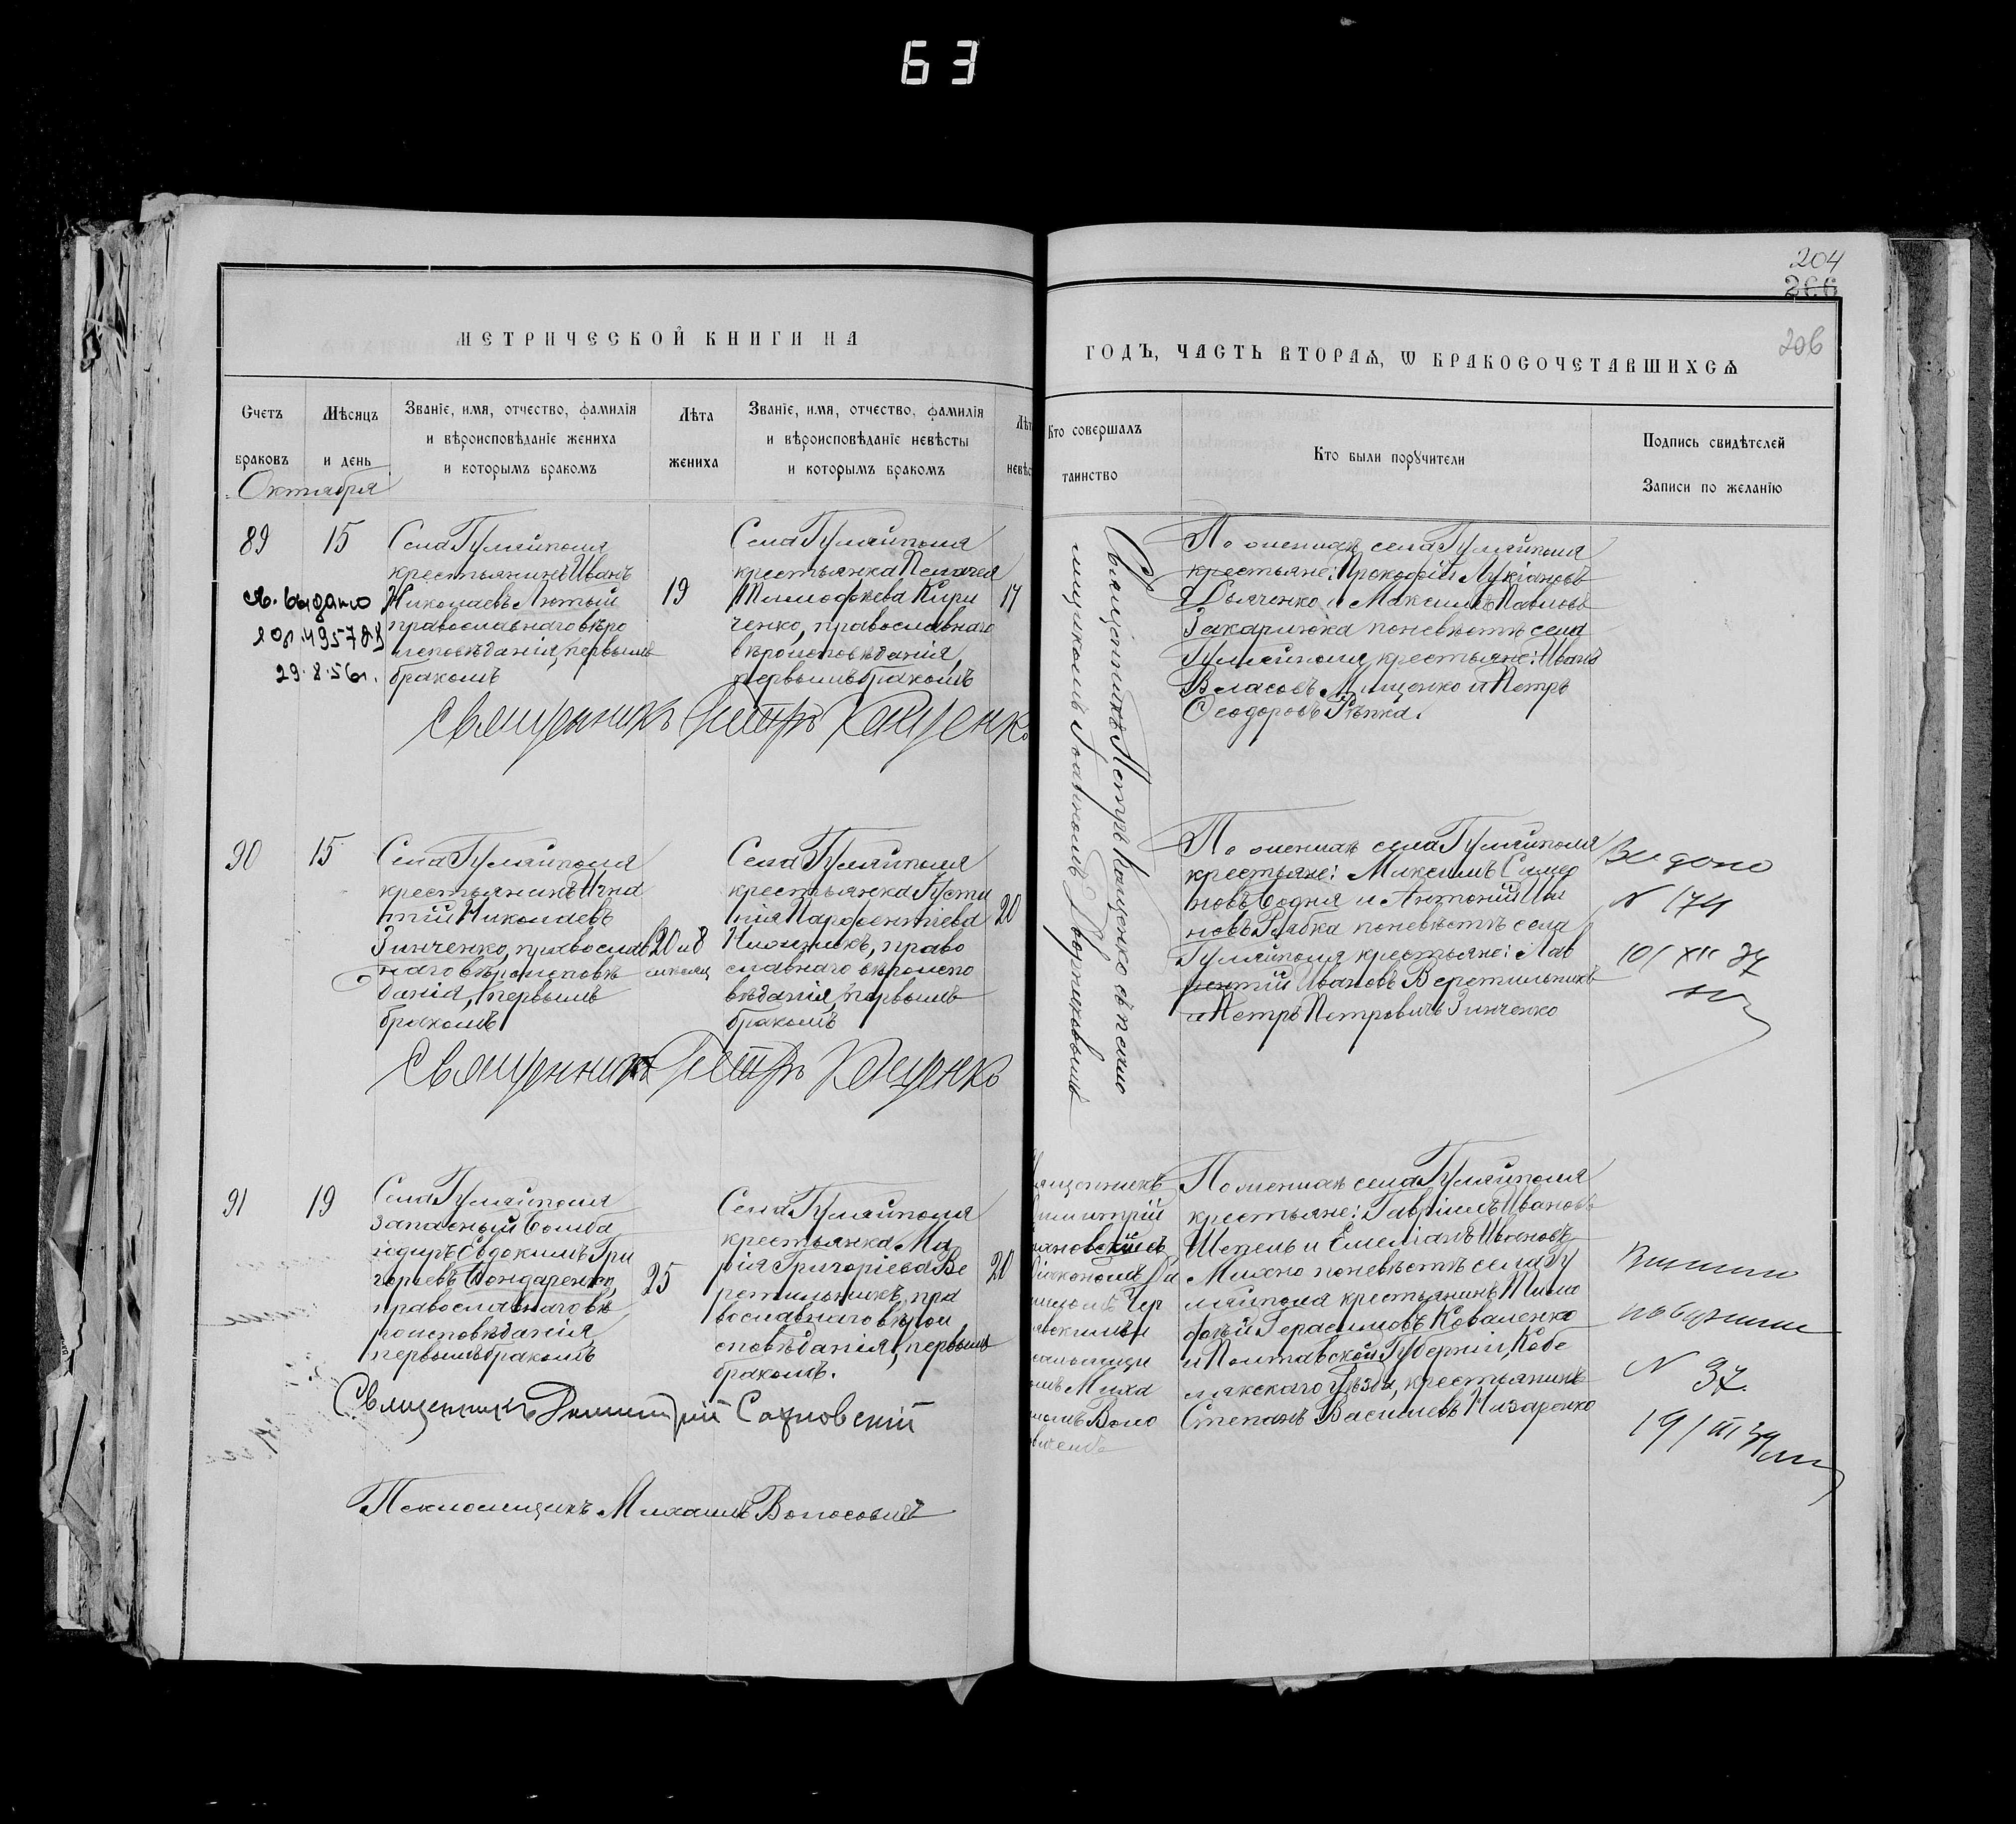 63
204
266
206
МЕТРИЧЕСКОЙ КНИГИ НА
ГОДЪ, ЧАСТЬ ВТОРАЯ, Ѡ БРАКОСОЧЕТАВШИХСЯ
Счетъ
браковъ
Мѣсяцъ
и день
Званіе, имя, отчество, фамилія
и вѣроисповѣданіе жениха
и которымъ бракомъ
Лѣта
жениха
Званіе, имя, отчество, фамилія
и вѣроисповѣданіе невѣсты
и которымъ бракомъ
Лѣт
невѣс
Кто совершалъ
таинство
Кто были порꙋчители
Подпись свидѣтелей
Записи по желанію
Октября
89
15
Села Гуляйполя
крестьянинъ Иванъ
Николаевъ Лютый
православнаго вѣро
исповѣданія, первымъ
бракомъ
св. выдано
29.8.56г.
19
Села Гуляйполя
крестьянка Пелагея
Тимофѣева Кири
ченко, православнаго
вѣроисповѣданія,
первымъ бракомъ
17
Священникъ Петръ Кащенко
Священникъ Петръ Кащенко съ псало
мщикомъ Іоанномъ Дворниковымъ
По женихѣ села Гуляйполя
крестьяне: Прокофій Лукіановъ
Дьяченко и Максимъ Павловъ
Захарлюка по невѣстѣ села
Гуляйполя крестьяне: Иванъ
Власовъ Мищенко и Петръ
Ѳеодоровъ Рѣпка.
90
15
Села Гуляйполя
крестьянинъ Игна
тій Николаевъ
Зинченко, православ
наго вѣроисповѣ
данія, первымъ
бракомъ
20 и 8
месяц
Села Гуляйполя
крестьянка Густи
нія Парфентіева
православнаго вѣроиспо
вѣданія, первымъ
бракомъ
20
Священникъ Петръ Кащенко
По женихѣ села Гуляйполя
крестьяне: Максимъ Симео
новъ Бодня и Антоній Ива
новъ Рябка по невѣстѣ села
Гуляйполя крестьяне: Лав
рентій Ивановъ Веретильникъ
и Петръ Петровичъ Зинченко
Видано
N 174
10/XII 37
91
19
Села Гуляйполя
запасный бомба
рдиръ Евдокимъ Гри
горіевъ Бондаренко,
православнаго вѣ
роисповѣданія
первымъ бракомъ
25
Села Гуляйполя
крестьянка Ма
рія Григоріева Ве
ретильникъ, пра
вославнаго вѣрои
сповѣданія, первымъ
бракомъ.
20
Священникъ Димитрій Сахновскій
Псаломщикъ Михаилъ
ященникъ
имитрій
хновскій съ
діакономъ Да
ниломъ Чер
нявскимъ и
псаломщи
омъ Миха
иломъ Воло
По женихѣ села Гуляйполя
крестьяне: Гавріилъ Ивановъ
Шепель и Емеліанъ Ивановъ
Михно по невѣстѣ села Гу
ляйполя крестьянинъ Тимо
фѣй Герасимовъ Коваленко
и Полтавской Губерніи, Кобе
лякскаго Уѣзда, крестьянинъ
Степанъ Васильевъ Назаренко
N 37.
19/III 39